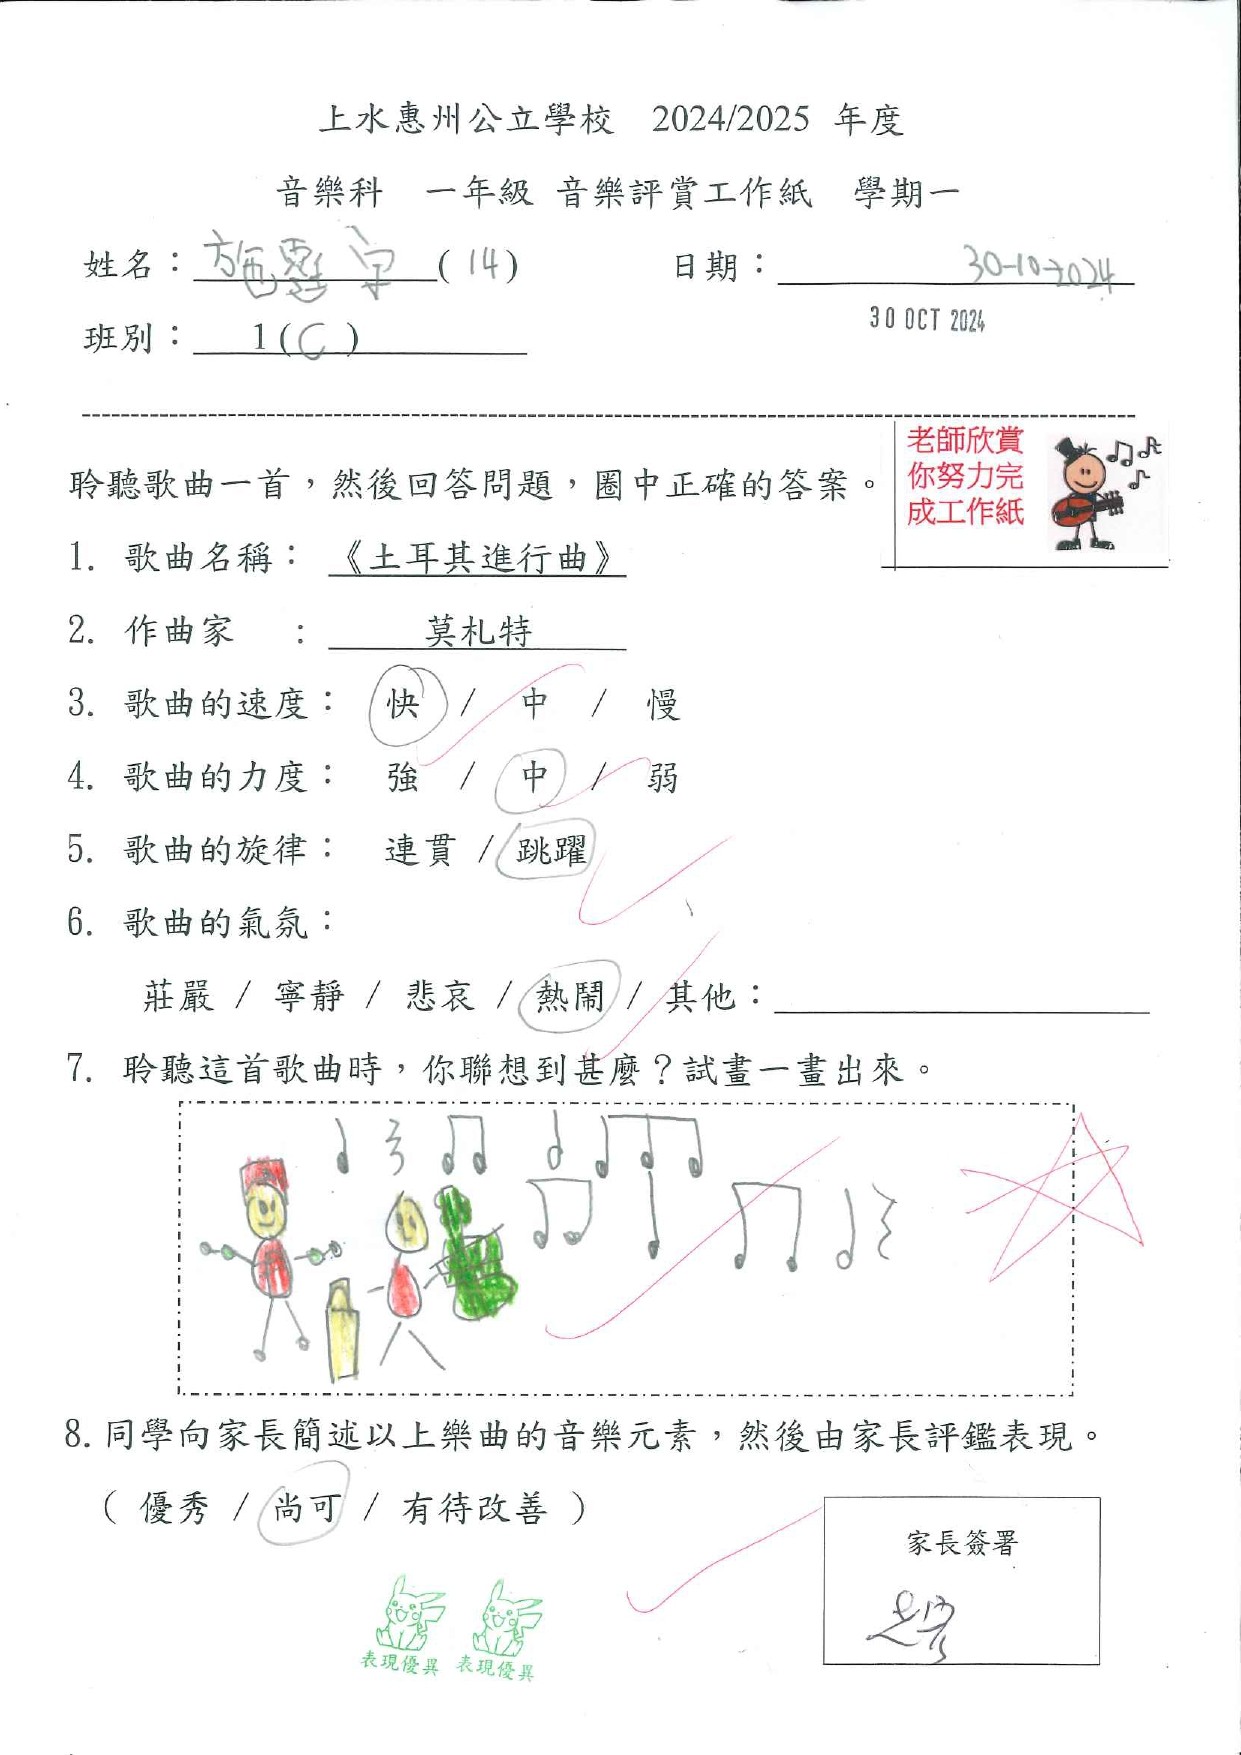 上水惠州公立學校 2024/2025 年度
音樂科 一年級 音樂評賞工作紙 學期一
姓名：施 (14) 日期：30-10-2024
班別：1(C) 30 OCT 2024
老師欣賞
你努力完
成工作紙
聆聽歌曲一首，然後回答問題，圈中正確的答案。
1. 歌曲名稱：《土耳其進行曲》
2. 作曲家 : 莫札特
3. 歌曲的速度： 快 / 中 / 慢
4. 歌曲的力度： 強 / 中 / 弱
5. 歌曲的旋律： 連貫 / 跳躍
6. 歌曲的氣氛：
莊嚴 / 寧靜 / 悲哀 / 熱鬧 / 其他：
7. 聆聽這首歌曲時，你聯想到甚麼？試畫一畫出來。
8. 同學向家長簡述以上樂曲的音樂元素，然後由家長評鑑表現。
( 優秀 / 尚可 / 有待改善 )
家長簽署
表現優異 表現優異